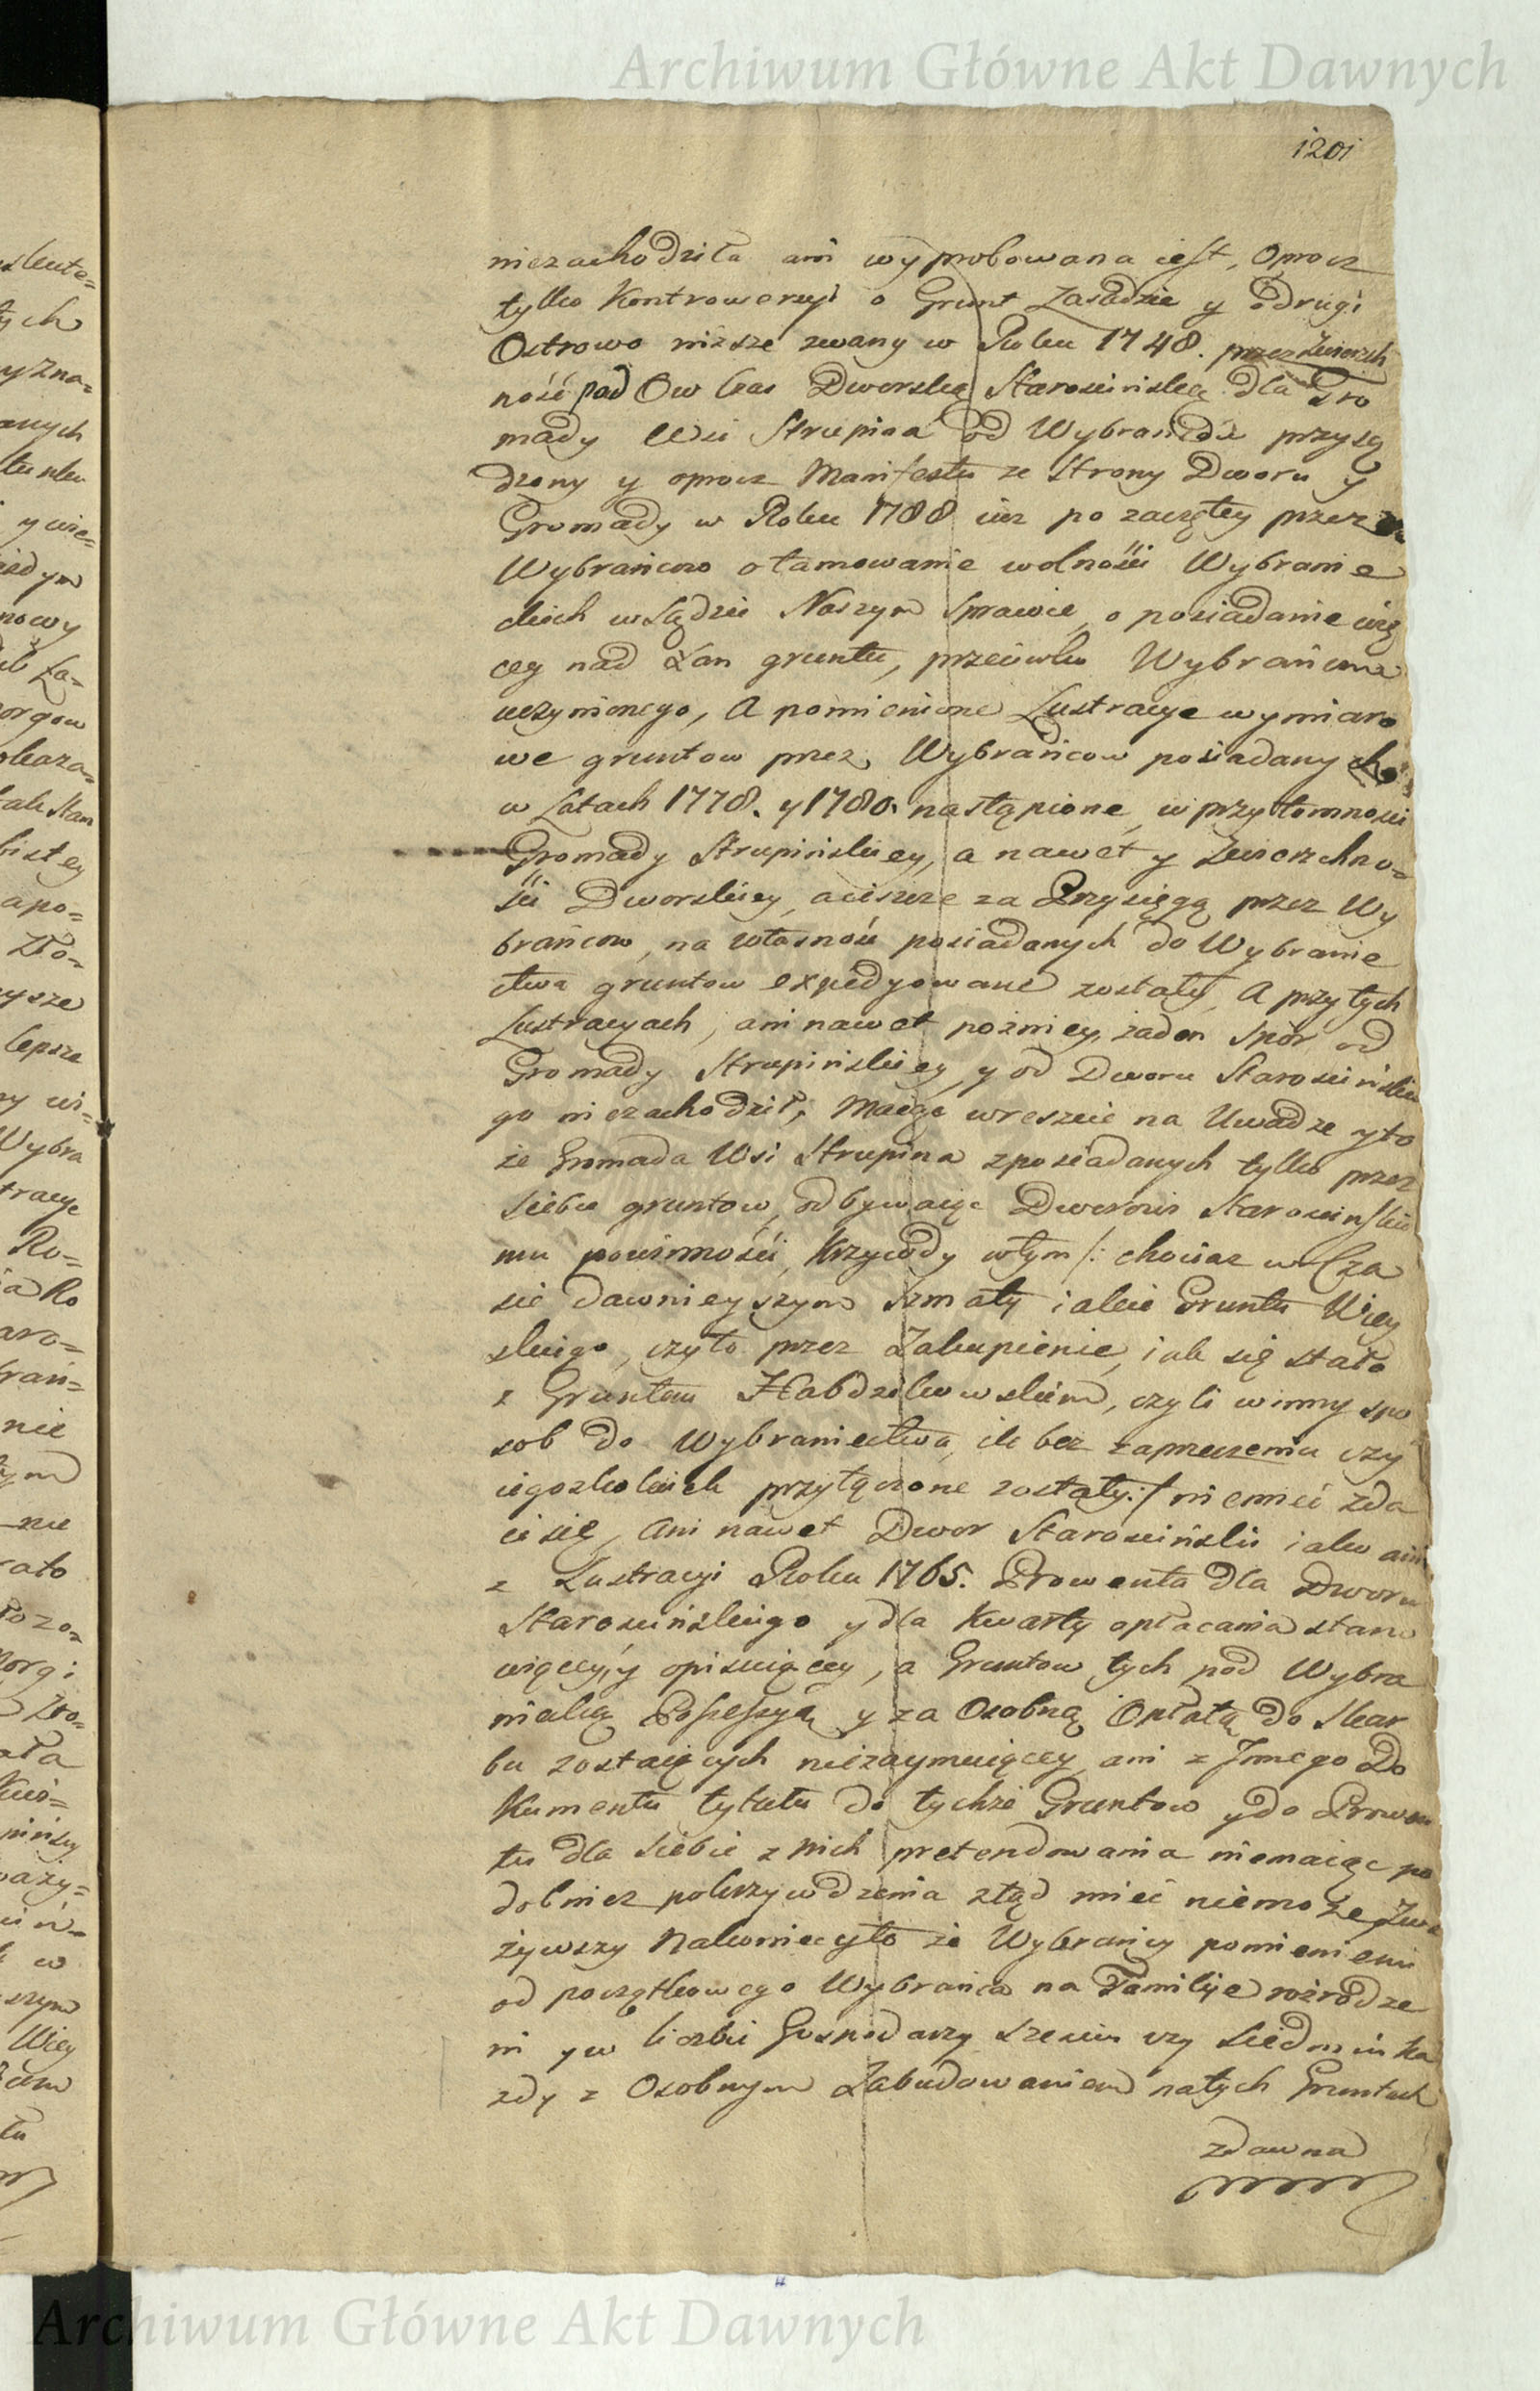 Archiwum Główne Akt Dawnych
1201
niezachodziła ani wyprobowana iest, Oprocz
tylko Kontrowersyi o Grunt Zasadzie y o drugi
Ostrowo niższe zwany w Roku 1748. przez Zwierzch
ność pod Ow Czas Dworską Starościńską dla Gro
mady Wsi Strupina od Wybrańców przysą
dzony y oprocz Manifestu ze Strony Dworu y
Gromady w Roku 1788 iuz po zaczętey przez
Wybrancow o tamowanie wolności Wybranie
ckich w Sądzie Naszym Sprawie, o posiadanie wię
cey nad Łan gruntu, przeciwko Wybrańcom
uczynionego, A pomienione Lustracye wymiaro
we gruntow przez Wybrańcow posiadanych
w Latach 1778. y 1780. nastąpione, w przytomności
Gromady Strupińskiey, a nawet y Zwierzchno=
ści Dworskiey, a ieszcze za Przysięgą przez Wy
brańcow, na własność posiadanych do Wybranie
ctwa gruntow expedyowane zostały, A przy tych
Lustracyach, ani nawet pozniey, żaden Spór od
Gromady Strupińskiey, y od Dworu Starościńskie
go niezachodził, Maiąc wreszcie na Uwadze y to
że Gromada Wsi Strupina z posiadanych tylko przez
Siebie gruntow, odbywaiąc Dworowi Starościńskie
mu powinności, Krzywdy w tym /: chociaz w Cza
sie dawnieyszym Szmaty iakie Gruntu Wiey
skiego, czyto przez Zakupienie, iak się stało
z Gruntem Habdzikowskim, czyli w inny spo
sob do Wybraniectwa, ile bez zaprzeczenia czy
iegozkolwiek przyłączone zostały :/ niemieć zda
ie się, Ani nawet Dwor Starościński iako ani
z Lustracyi Roku 1765. Prowenta dla Dworu
Starościńskiego y dla Kwarty opłacania stano
wiącey, y opisuiącey, a Gruntow tych pod Wybra
niecką Possessyą y za Osobną Opłatą do Skar
bu zostaiących niezaymuiącey, ani z Innego Do
kumentu tytułu do tychże Gruntow y do Prowen
tu dla Siebie z nich pretendowania niemaiąc po
dobniez pokrzywdzenia ztąd mieć niemoże, Zwa
żywszy Nakoniec y to że Wybrańcy pomienieni
od początkowego Wybrańca na Familije rozrodze
ni y w liczbie Gospodarzy Sześciu czy Siedmiu Ka
zdy z Osobnym Zabudowaniem na tych Gruntach
zdawna
Archiwum Główne Akt Dawnych